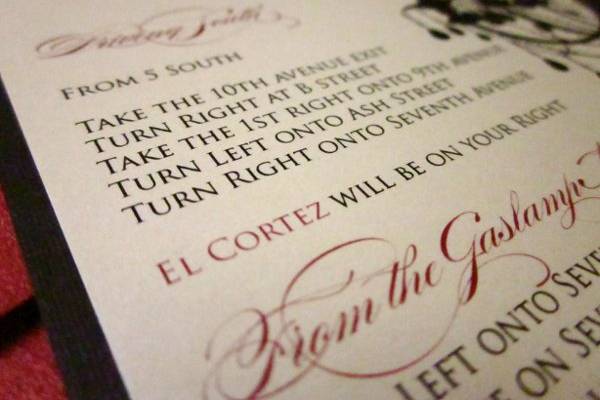 Driving South
FROM 5 SOUTH
TAKE THE 10TH AVENUE EXIT
TURN RIGHT AT B STREET
TAKE THE 1ST RIGHT ONTO 9TH AVENUE
TURN LEFT ONTO ASH STREET
TURN RIGHT ONTO SEVENTH AVENUE
EL CORTEZ WILL BE ON YOUR RIGHT
From the Gaslamp
LEFT ONTO SEVE
ON SEV